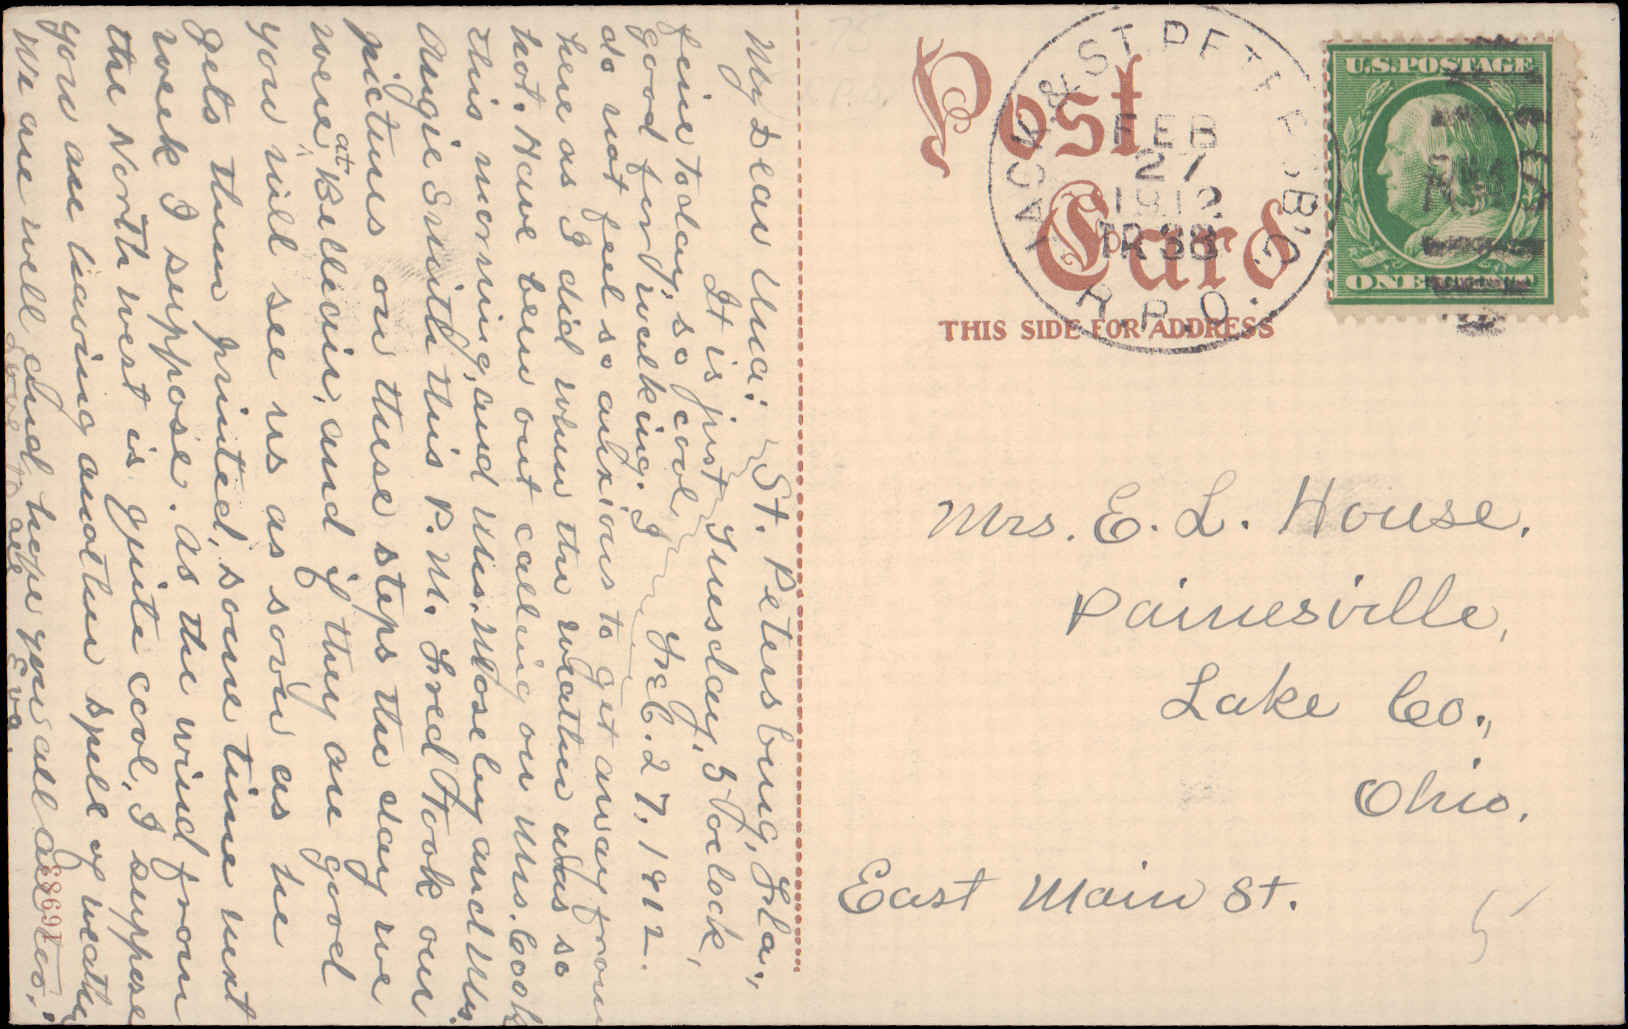 St. Petersburg, Fla.,
Tuesday, 5 o'clock,
Feb. 27, 1912.
My Dear Una:
It is just
fine today, so cool,
good for walking. I
do not feel so anxious to get away from
here as I did when the weather was so
hot. Have been out calling on Mrs. Cook
this morning, and Mrs. Moseley and Mrs.
Angie Smith this P.M. Fred took our
pictures on these steps the day we
were at Bellecin, and if they are good
you will see us as soon as he
gets them printed, some time next
week I suppose. As the wind from
the North west is quite cool, I suppose
you are having another spell of weather
We are well and hope you all are too.
Love to all
Eva.
16983
Post
Card
THIS SIDE FOR ADDRESS
JACK. & ST. PETERSB'G
FEB
27
1912
TR 38
R.P.O.
U.S. POSTAGE
ONE CENT
Mrs. E. L. House,
Painesville,
Lake Co.,
Ohio,
East Main St.
5